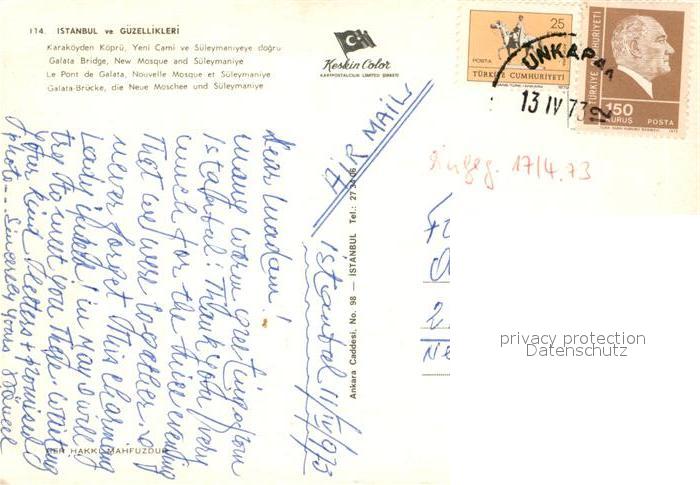 114. ISTANBUL ve GÜZELLIKLERI
Karaköyden Köprü, Yeni Cami ve Süleymaniyeye doğru
Galata Bridge, New Mosque and Süleymaniye
Le Pont de Galata, Nouvelle Mosque et Süleymaniye
Galata-Brücke, die Neue Moschee und Süleymaniye
Keskin Color
KARTPOSTALCILIK LIMITED ŞIRKETI
25
POSTA
TÜRKİYE CUMHURİYETİ
TÜRKİYE CUMHURİYETİ
150
KURUŞ POSTA
UNKAPANI
13 IV 73
Eingeg. 17/4.73
AIR MAIL
Istanbul 11/IV/973
Dear Madam!
many warm greetings from
Istanbul! Thank you very
much for the nice evening
that we were together. I
never forget this charming
Lady indeed! in May I will
try to meet you there. waiting
your kind letters + promised
photo -- Sincerely yours
Ankara Caddesi, No. 98 — ISTANBUL Tel.: 27
HER HAKKI MAHFUZDUR
privacy protection
Datenschutz